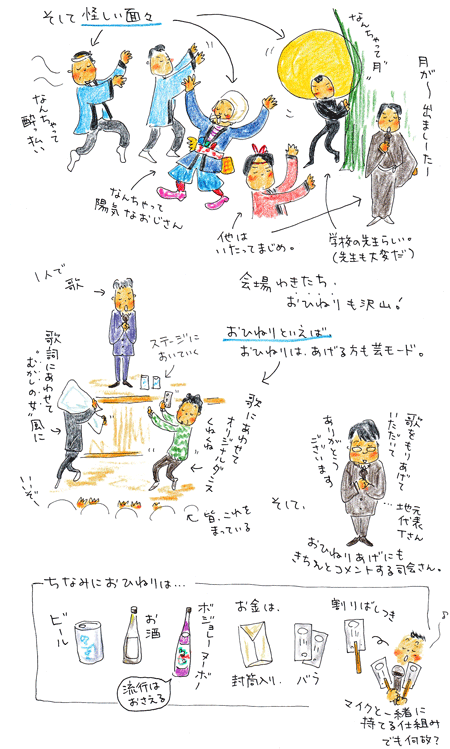 そして 怪しい面々
なんちゃって
酔っ払い
なんちゃって
陽気なおじさん
なんちゃって
"月"
月が〜
出ましーたー
他は
いたってまじめ。
学校の先生らしい。
(先生も大変だ)
会場わきたち、
おひねりも沢山!
1人で
歌
ステージに
おいていく
おひねりといえば
おひねりは、あげる方も芸モード。
歌詞にあわせて
"むかしの女"風に
歌にあわせて
オリジナルダンス
くねくね
いいぞ〜
皆、これを
まっている
そして、
歌をもりあげて
いただいて
ありがとう
ございます
…地元
代表
Tさん
おひねりあげにも
きちんとコメントする司会さん。
ちなみにおひねりは…
ビール
お酒
ボジョレーヌーボー
流行は
おさえる
お金は、
封筒入り、
バラ
割りばしつき
♪
マイクと一緒に
持てる仕組み
でも何故?